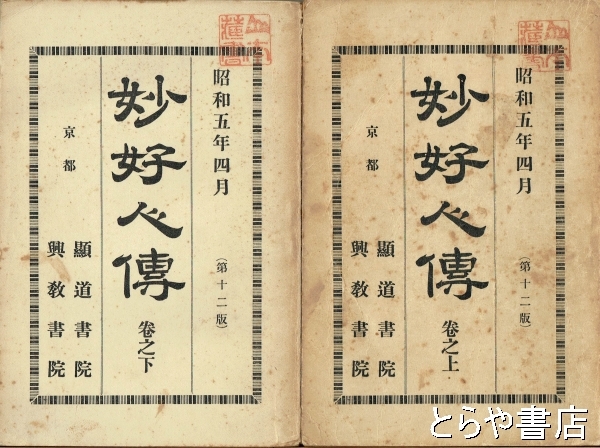 昭和五年四月
(第十二版)
妙好人傳
卷之上
京都
顯道書院
興教書院
昭和五年四月
(第十二版)
妙好人傳
卷之下
京都
顯道書院
興教書院
とらや書店